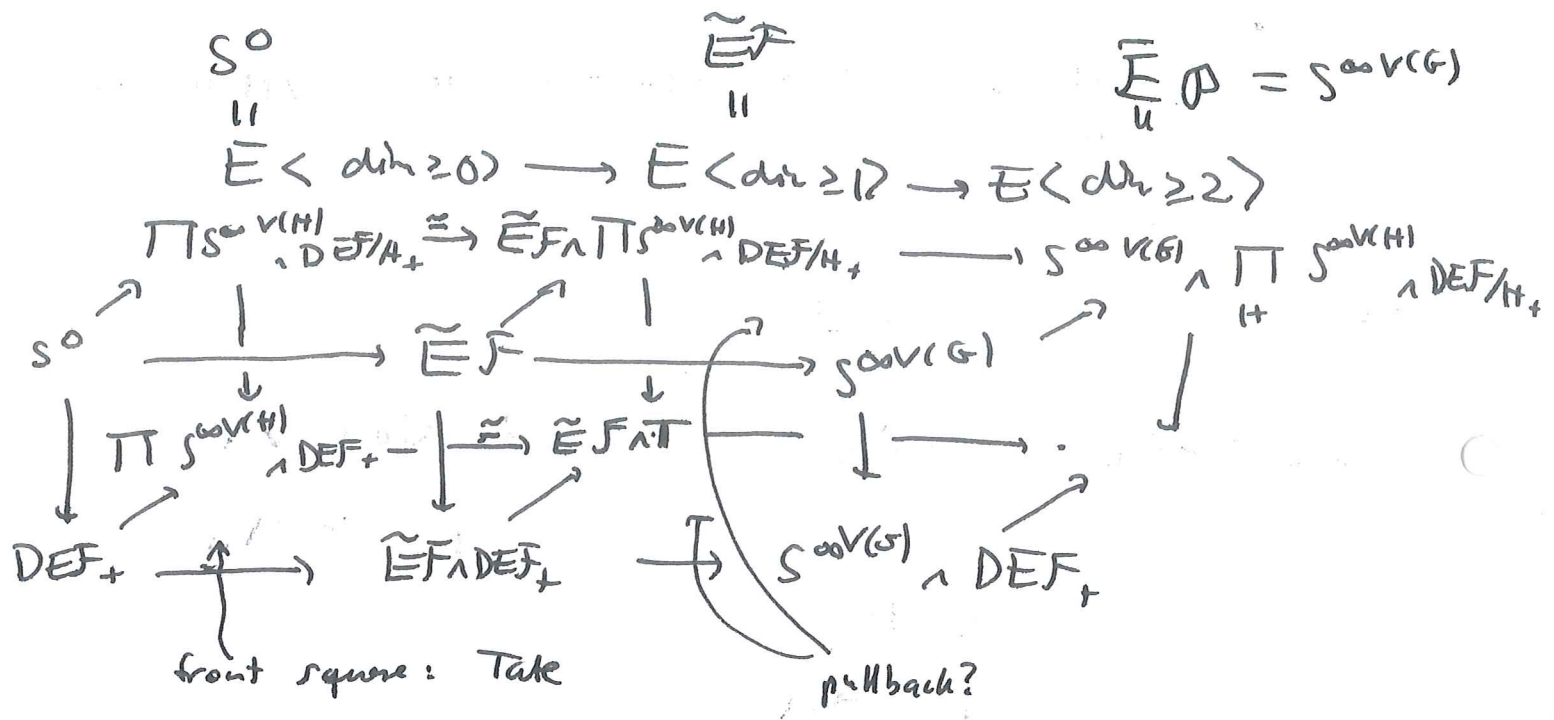 S⁰ ẼF
Ē P = S^{∞V(G)}
|| || ||
E < dim ≥ 0> ⟶ E <dim ≥ 1> → E< dim ≥ 2>
∏ S^{∞V(H)} ∧ DEF/H₊ ≃→ ẼF ∧ ∏ S^{∞V(H)} ∧ DEF/H₊ ⟶ S^{∞V(G)} ∧ ∏_H S^{∞V(H)} ∧ DEF/H₊
S⁰ ⟶ ẼF ⟶ S^{∞V(G)}
∏ S^{∞V(H)} ∧ DEF₊ — ≃→ ẼF ∧ T — → .
DEF₊ ⟶ ẼF ∧ DEF₊ → S^{∞V(G)} ∧ DEF₊
front square: Tate
pullback?